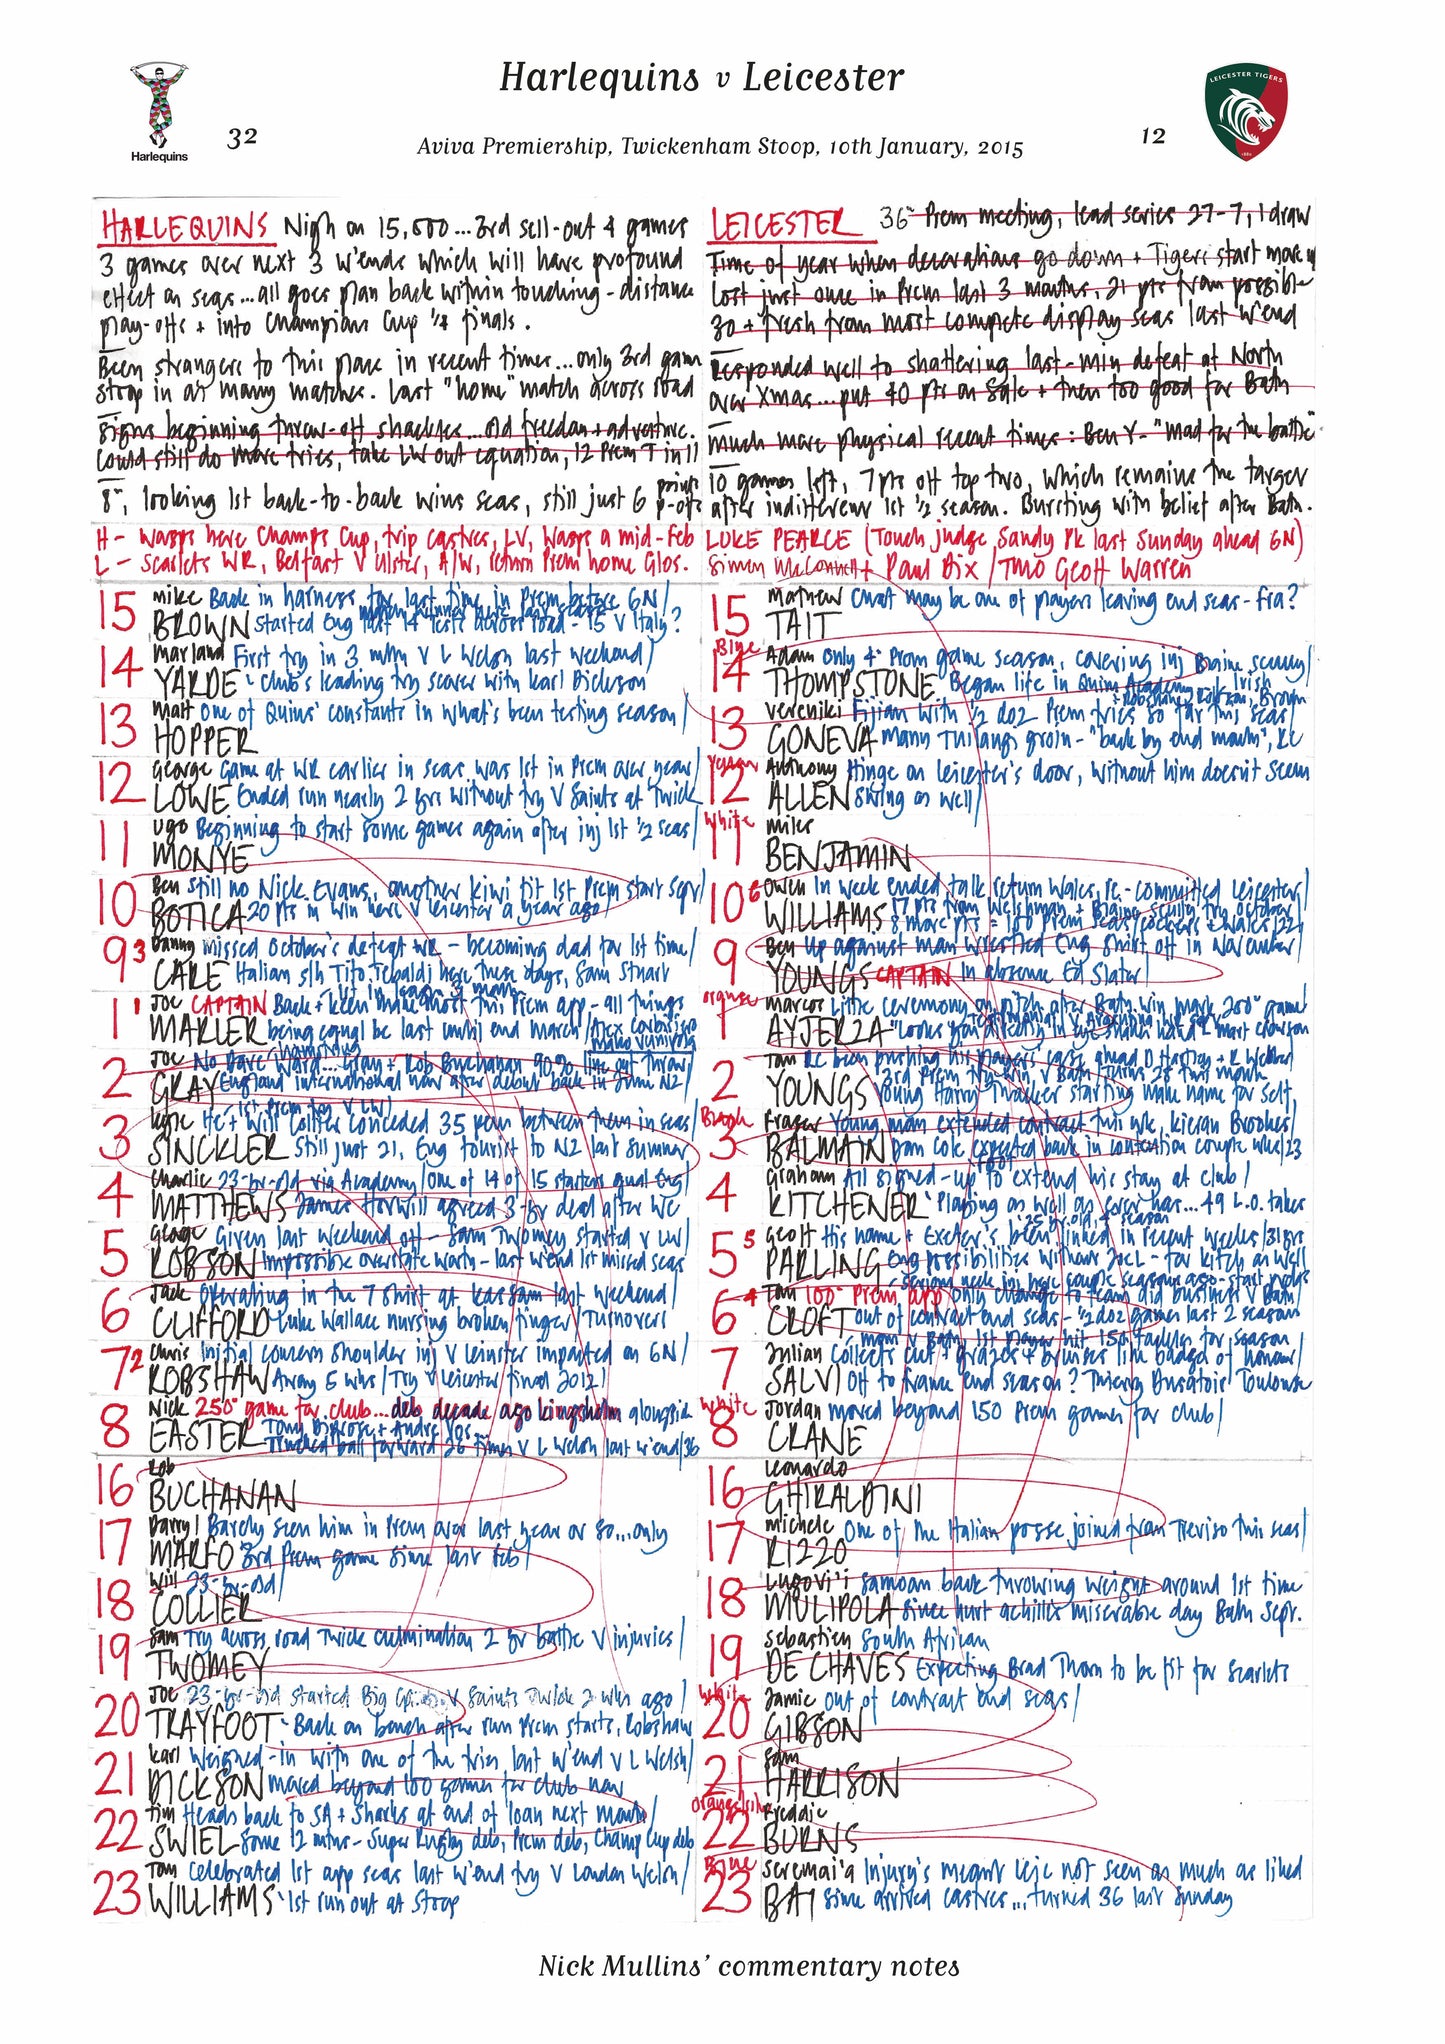 Harlequins v Leicester
LEICESTER TIGERS
Harlequins
32
Aviva Premiership, Twickenham Stoop, 10th January, 2015
12
HARLEQUINS Nigh on 15,000...3rd sell-out 4 games
3 games over next 3 w'ends which will have profound
effect on seas...all goes plan back within touching-distance
play-offs + into Champions Cup 1/4 finals.
Been strangers to this place in recent times...only 3rd game
Stoop in as many matches. Last "home" match across road
Signs beginning throw-off shackles...old freedom + adventure.
Could still do more tries, take LW out equation, 12 Prem T in 11
8th, looking 1st back-to-back wins seas, still just 6 points p-offs
H - Wasps here Champs Cup, trip Castres, LV, Wasps a mid-Feb
L - Scarlets WR, Belfast V Ulster, A/W, return Prem home Glos.
LEICESTER 36th Prem meeting, lead series 27-7, 1 draw
Time of year when decorations go down + Tigers start move up
Lost just once in Prem last 3 months, 21 pts from possible
30 + fresh from most complete display seas last w'end
Responded well to shattering last-min defeat at North
over Xmas...put 40 pts on Sale + then too good for Bath
Much more physical recent times: Ben Y - "Mad for the battle"
10 games left, 7pts off top two, which remains the target
after indifferent 1st 1/2 season. Bursting with belief after Bath.
LUKE PEARCE (Touch judge Sandy Pk last Sunday ahead 6N)
Simon McConnell + Paul Dix / TMO Geoff Warren
15 Mike Back in harness for last time in Prem before 6N/
BROWN Started Eng last 14 Tests across road - 15 V Italy?
14 Marland First try in 3 mths V L Welsh last weekend/
YARDE Club's leading try scorer with Karl Dickson
13 Matt One of Quins' constants in what's been testing season/
HOPPER
12 George Game at WR earlier in seas was 1st in Prem over year/
LOWE Ended run nearly 2 yrs without try V Saints at Twick
11 Ugo Beginning to start some games again after inj 1st 1/2 seas/
MONYE
10 Ben Still no Nick Evans, another Kiwi fit 1st Prem start Sept/
BOTICA 20 pts in win here V Leicester a year ago/
9 3 Danny Missed October's defeat WR - becoming dad for 1st time/
CARE Italian s/h Tito Tebaldi here these days, Sam Stuart
1 1 Joe CAPTAIN Back + keen make most this Prem app - all things
MARLER being equal be last until end March/Alex Corbisiero
Mako Vunipola
2 Joe No Dave Ward...Gray + Rob Buchanan 90% line out throw/
GRAY England international now after debut back in June NZ/
3 Kyle He + Will Collier conceded 35 pens between them in seas/
SINCKLER Still just 21, Eng tourist to NZ last summer
4 Charlie 23-yr-old via Academy/One of 14 of 15 starters qual Eng/
MATTHEWS James Horwill agreed 3-yr deal after WC
5 George Given last weekend off - Sam Twomey started V LW/
ROBSON Impossible overstate worth - last w'end 1st missed seas
6 Jack Operating in the 7 shirt at last weekend/
CLIFFORD Luke Wallace nursing broken finger/Turnovers
7 2 Chris Initial concern shoulder inj V Leinster impacted on 6N/
ROBSHAW Away 5 wks/Try V Leicester final 2012/
8 Nick 250th game for club...deb decade ago Kingsholm alongside
EASTER Tony Diprose + Andre Vos
Trucked ball forward 26 times V L Welsh last w'end/36
16 Rob
BUCHANAN
17 Darryl Barely seen him in Prem over last year or so...only
MARFO 3rd Prem game since last Feb/
18 Will 23-yr-old/
COLLIER
19 Sam Try across road Twick culmination 2 yr battle V injuries/
TWOMEY
20 Joe 23-yr-old started Big Game V Saints Twick 2 wks ago/
TRAYFOOT Back on bench after run Prem starts, Robshaw
21 Karl Weighed-in with one of the tries last w'end V L Welsh/
DICKSON Moved beyond 100 games for club now
22 Tim Heads back to SA + Sharks at end of loan next month/
SWIEL Some 12 mths - Super Rugby deb, Prem deb, Champ Cup deb
23 Tom Celebrated 1st app seas last w'end try V London Welsh/
WILLIAMS 1st run out at Stoop
15 Mathew Cwat may be one of players leaving end seas - Fra?
TAIT
Blue
14 Adam Only 4th Prom game season, covering inj Blaine Scully/
THOMPSTONE Began life in Quins Academy
13 Vereniki Fijian with 1/2 doz Prem tries so far this seas/
GONEVA Manu Tuilagi groin - "back by end month", RC
12 Anthony Hinge on Leicester's door, without him doesn't seem
ALLEN Swing as well/
White
11 Miles
BENJAMIN
10 6 Owen In week ended talk return Wales, re-committed Leicester/
WILLIAMS 17 pts from Welshman + Blaine Scully try October
9 Ben Up against man wrestled Eng shirt off in November/
YOUNGS CAPTAIN In absence Ed Slater/
Orange
1 Marcos Little ceremony on pitch after Bath win mark 250th game/
AYERZA
2 Tom RC been pushing his players case ahead D Hartley + R Webber
YOUNGS 3rd Prem try win V Bath/Turns 28 this month
Young Harry Thacker starting make name for self,
3 Fraser Young man extended contract this wk, Kieran Brookes/
BALMAIN Dan Cole expected back in contention couple wks/23
4 Graham All signed-up to extend his stay at club/
KITCHENER Playing as well as ever has...49 L.O. takes
5 5 Geoff His name + Exeter's been linked in recent weeks/31 yrs
PARLING Eng possibilities without Joe L - for Kitch as well
6 4 Tom 100th Prem app Only change to team did business V Bath/
CROFT Out of contract end seas - 1/2 doz games last 2 seasons
7 Julian Collects cuts + grazes + bruises like badges of honour/
SALVI Off to France end season? Thierry Dusatoir Toulouse
White
8 Jordan Moved beyond 150 Prem games for club/
CRANE
16 Leonardo
GHIRALDINI
17 Michele One of the Italian posse joined from Treviso this seas/
RIZZO
18 Logovi'i Samoan back throwing weight around 1st time
MULIPOLA since hurt achilles miserable day Bath Sept.
19 Sebastien South African
DE CHAVES Expecting Brad Thorn to be fit for Scarlets
White
20 Jamie Out of contract end seas/
GIBSON
21 Sam
HARRISON
22 Freddie
BURNS
Blue
23 Seremai'a Injury's meant Leic not seen as much as liked
BAI since arrived Castres...turned 36 last Sunday
Nick Mullins' commentary notes